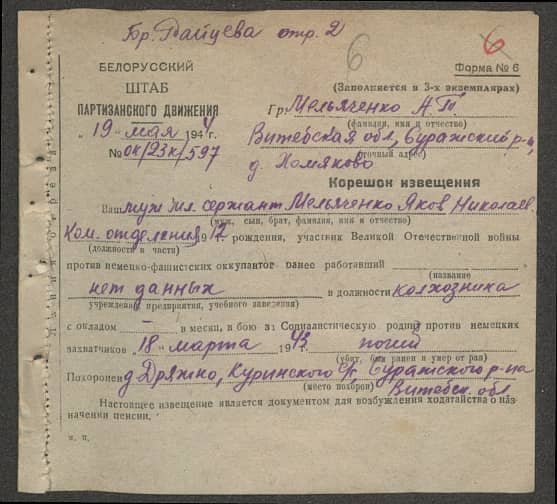 Бр. Райцева отр. 2
6
6
БЕЛОРУССКИЙ
ШТАБ
ПАРТИЗАНСКОГО ДВИЖЕНИЯ
„19“ мая 1944
№ ОК/23к/597
Форма № 6
(Заполняется в 3-х экземплярах)
Гр. Мельяченко А.Т.
(фамилия, имя и отчество)
Витебская обл, Суражский р-н,
(точный адрес)
д. Хомяково
Корешок извещения
Ваш муж мл. сержант Мельяченко Яков Николаев.
(муж, сын, брат, фамилия, имя и отчество)
Ком. отделения 1912 рождения, участник Великой Отечественной войны
(должности в части)
против немецко-фашистских оккупантов ранее работавший
(название
нет данных в должности колхозника
учреждения предприятия, учебного заведения)
с окладом — в месяц, в бою за Социалистическую родину против немецких
захватчиков „18“ марта 1943 погиб
(убит, был ранен и умер от ран)
Похоронен д. Дряжно, Куринского с/с, Суражского р-на
(место похорон) Витебск. обл
Настоящее извещение является документом для возбуждения ходатайства о наз-
начении пенсии.
м. п.